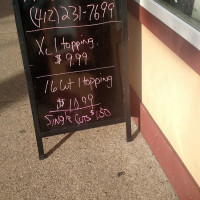 (412)231-7699
XL 1 topping
$9.99
16 Cut 1 topping
$10.99
Single Cuts $1.50